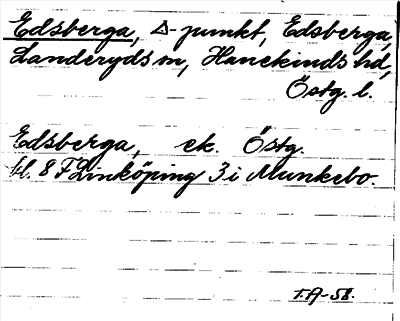 Edsberga, △-punkt, Edsberga,
Landeryds sn, Hanekinds hd,
Östg. l.
Edsberga, ek. Östg.
bl. 8 F Linköping 3 i Munkebo.
T.A-58.